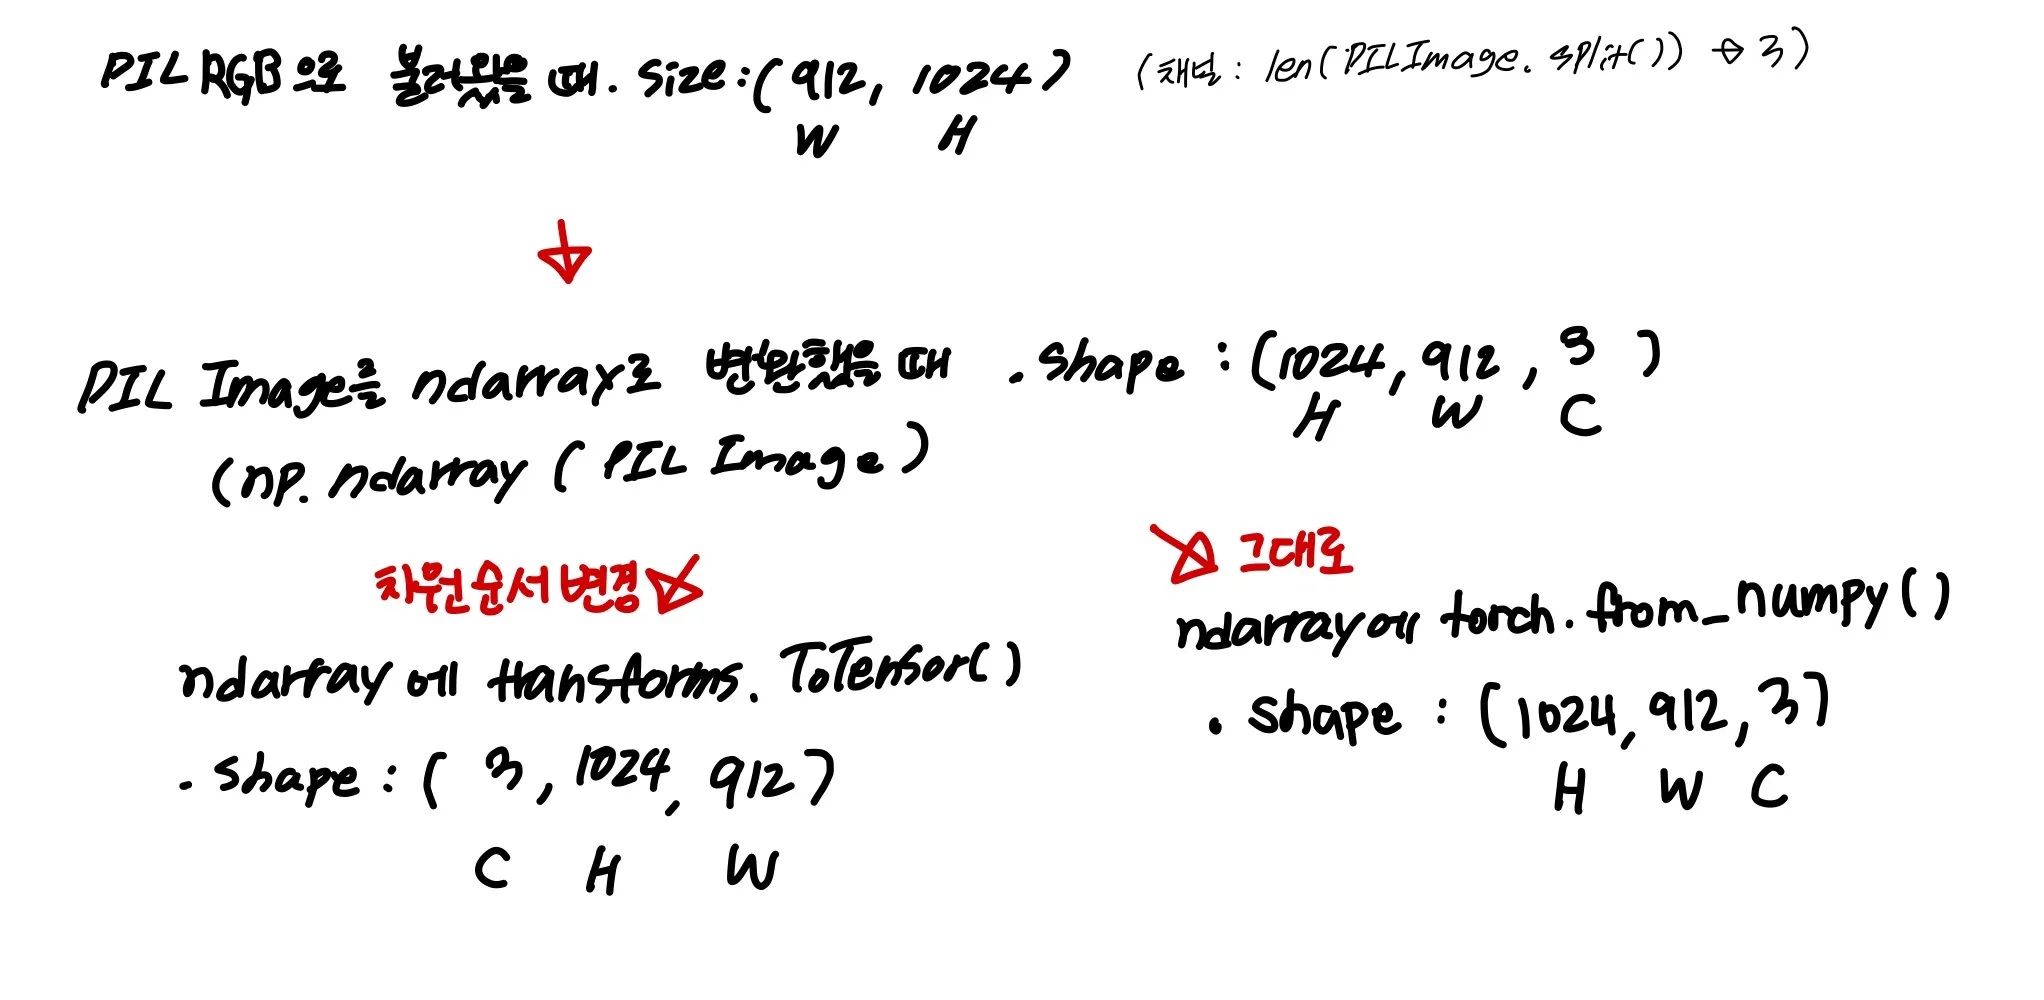 PIL RGB으로 불러왔을 때. Size:(912, 1024) (채널: len(PILImage.split()) → 3)
W H
PIL Image를 ndarray로 변환했을 때 .shape : (1024, 912, 3)
H W C
(np.ndarray ( PIL Image )
차원순서변경
그대로
ndarray에 transforms.ToTensor()
.shape : ( 3, 1024, 912)
C H W
ndarray에 torch.from_numpy()
.shape : (1024, 912, 3)
H W C